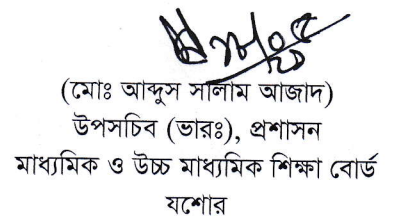 (মোঃ আব্দুস সালাম আজাদ)
উপসচিব (ভারঃ), প্রশাসন
মাধ্যমিক ও উচ্চ মাধ্যমিক শিক্ষা বোর্ড
যশোর